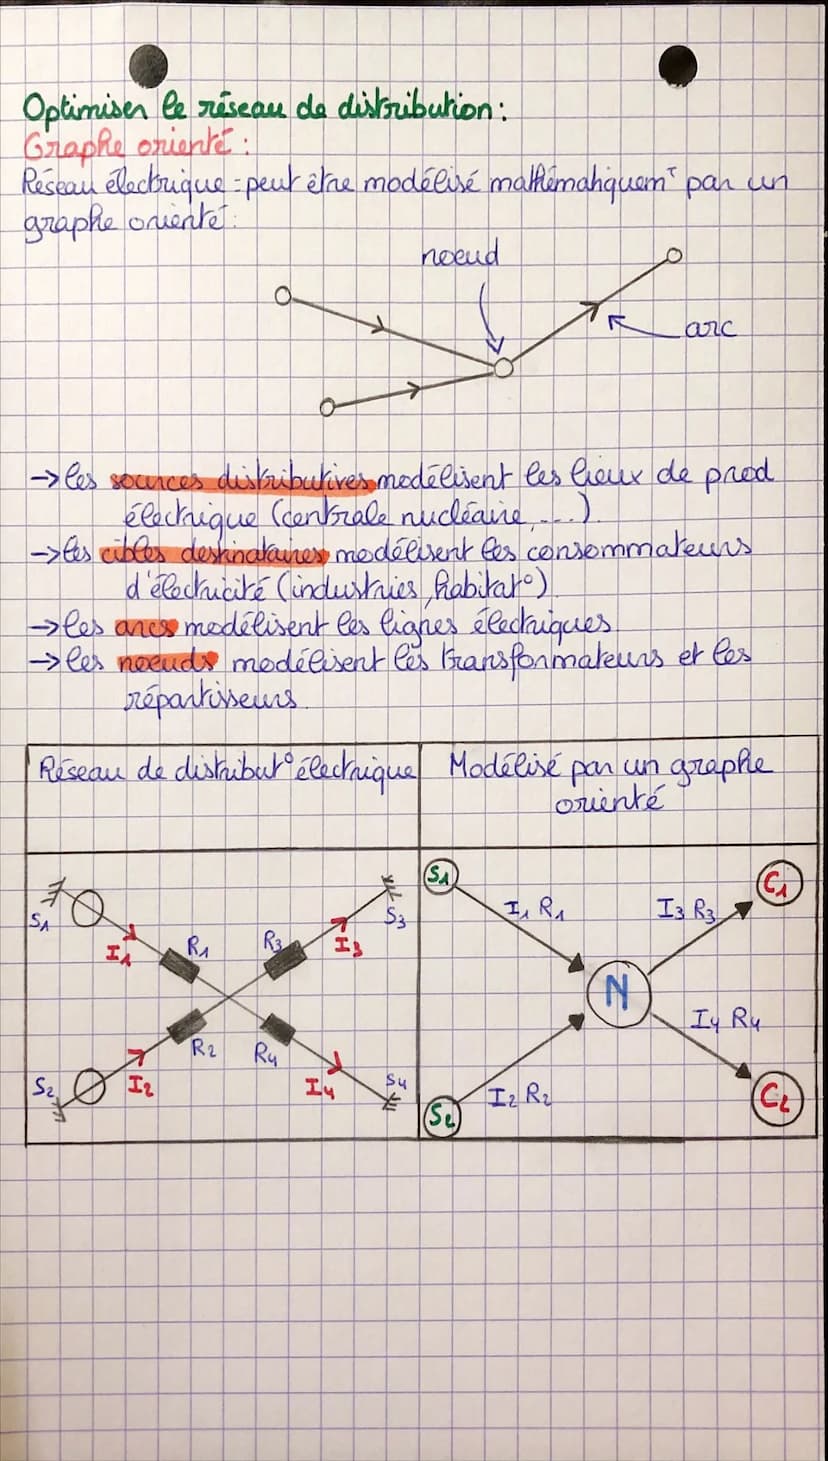 Optimiser le réseau de distribution :
Graphe orienté :
Réseau électrique = peut être modélisé mathématiquemᵗ par un
graphe orienté :
noeud
arc
→ les sources distributives modélisent les lieux de prod
électrique (centrale nucléaire, ...).
→ les cibles destinataires modélisent les consommateurs
d'électricité (industries, habitat°)
→ les arcs modélisent les lignes électriques
→ les noeuds modélisent les transformateurs et les
répartisseurs.
Réseau de distribut° électrique
S1
I1
R1
R3
I3
S3
S2
I2
R2
R4
I4
S4
Modélisé par un graphe
orienté
S1
I1 R1
I3 R3
C1
N
I4 R4
S2
I2 R2
C2